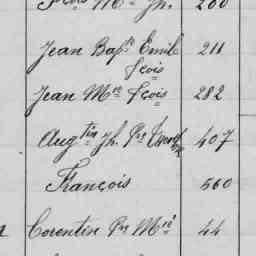 Fçois Mie Jh. 200
Jean Bapte Emile 211
fçois
Jean Mie fçois 282
Augtin Jh. Prre 407
François 560
Corentin Prre Mie 44